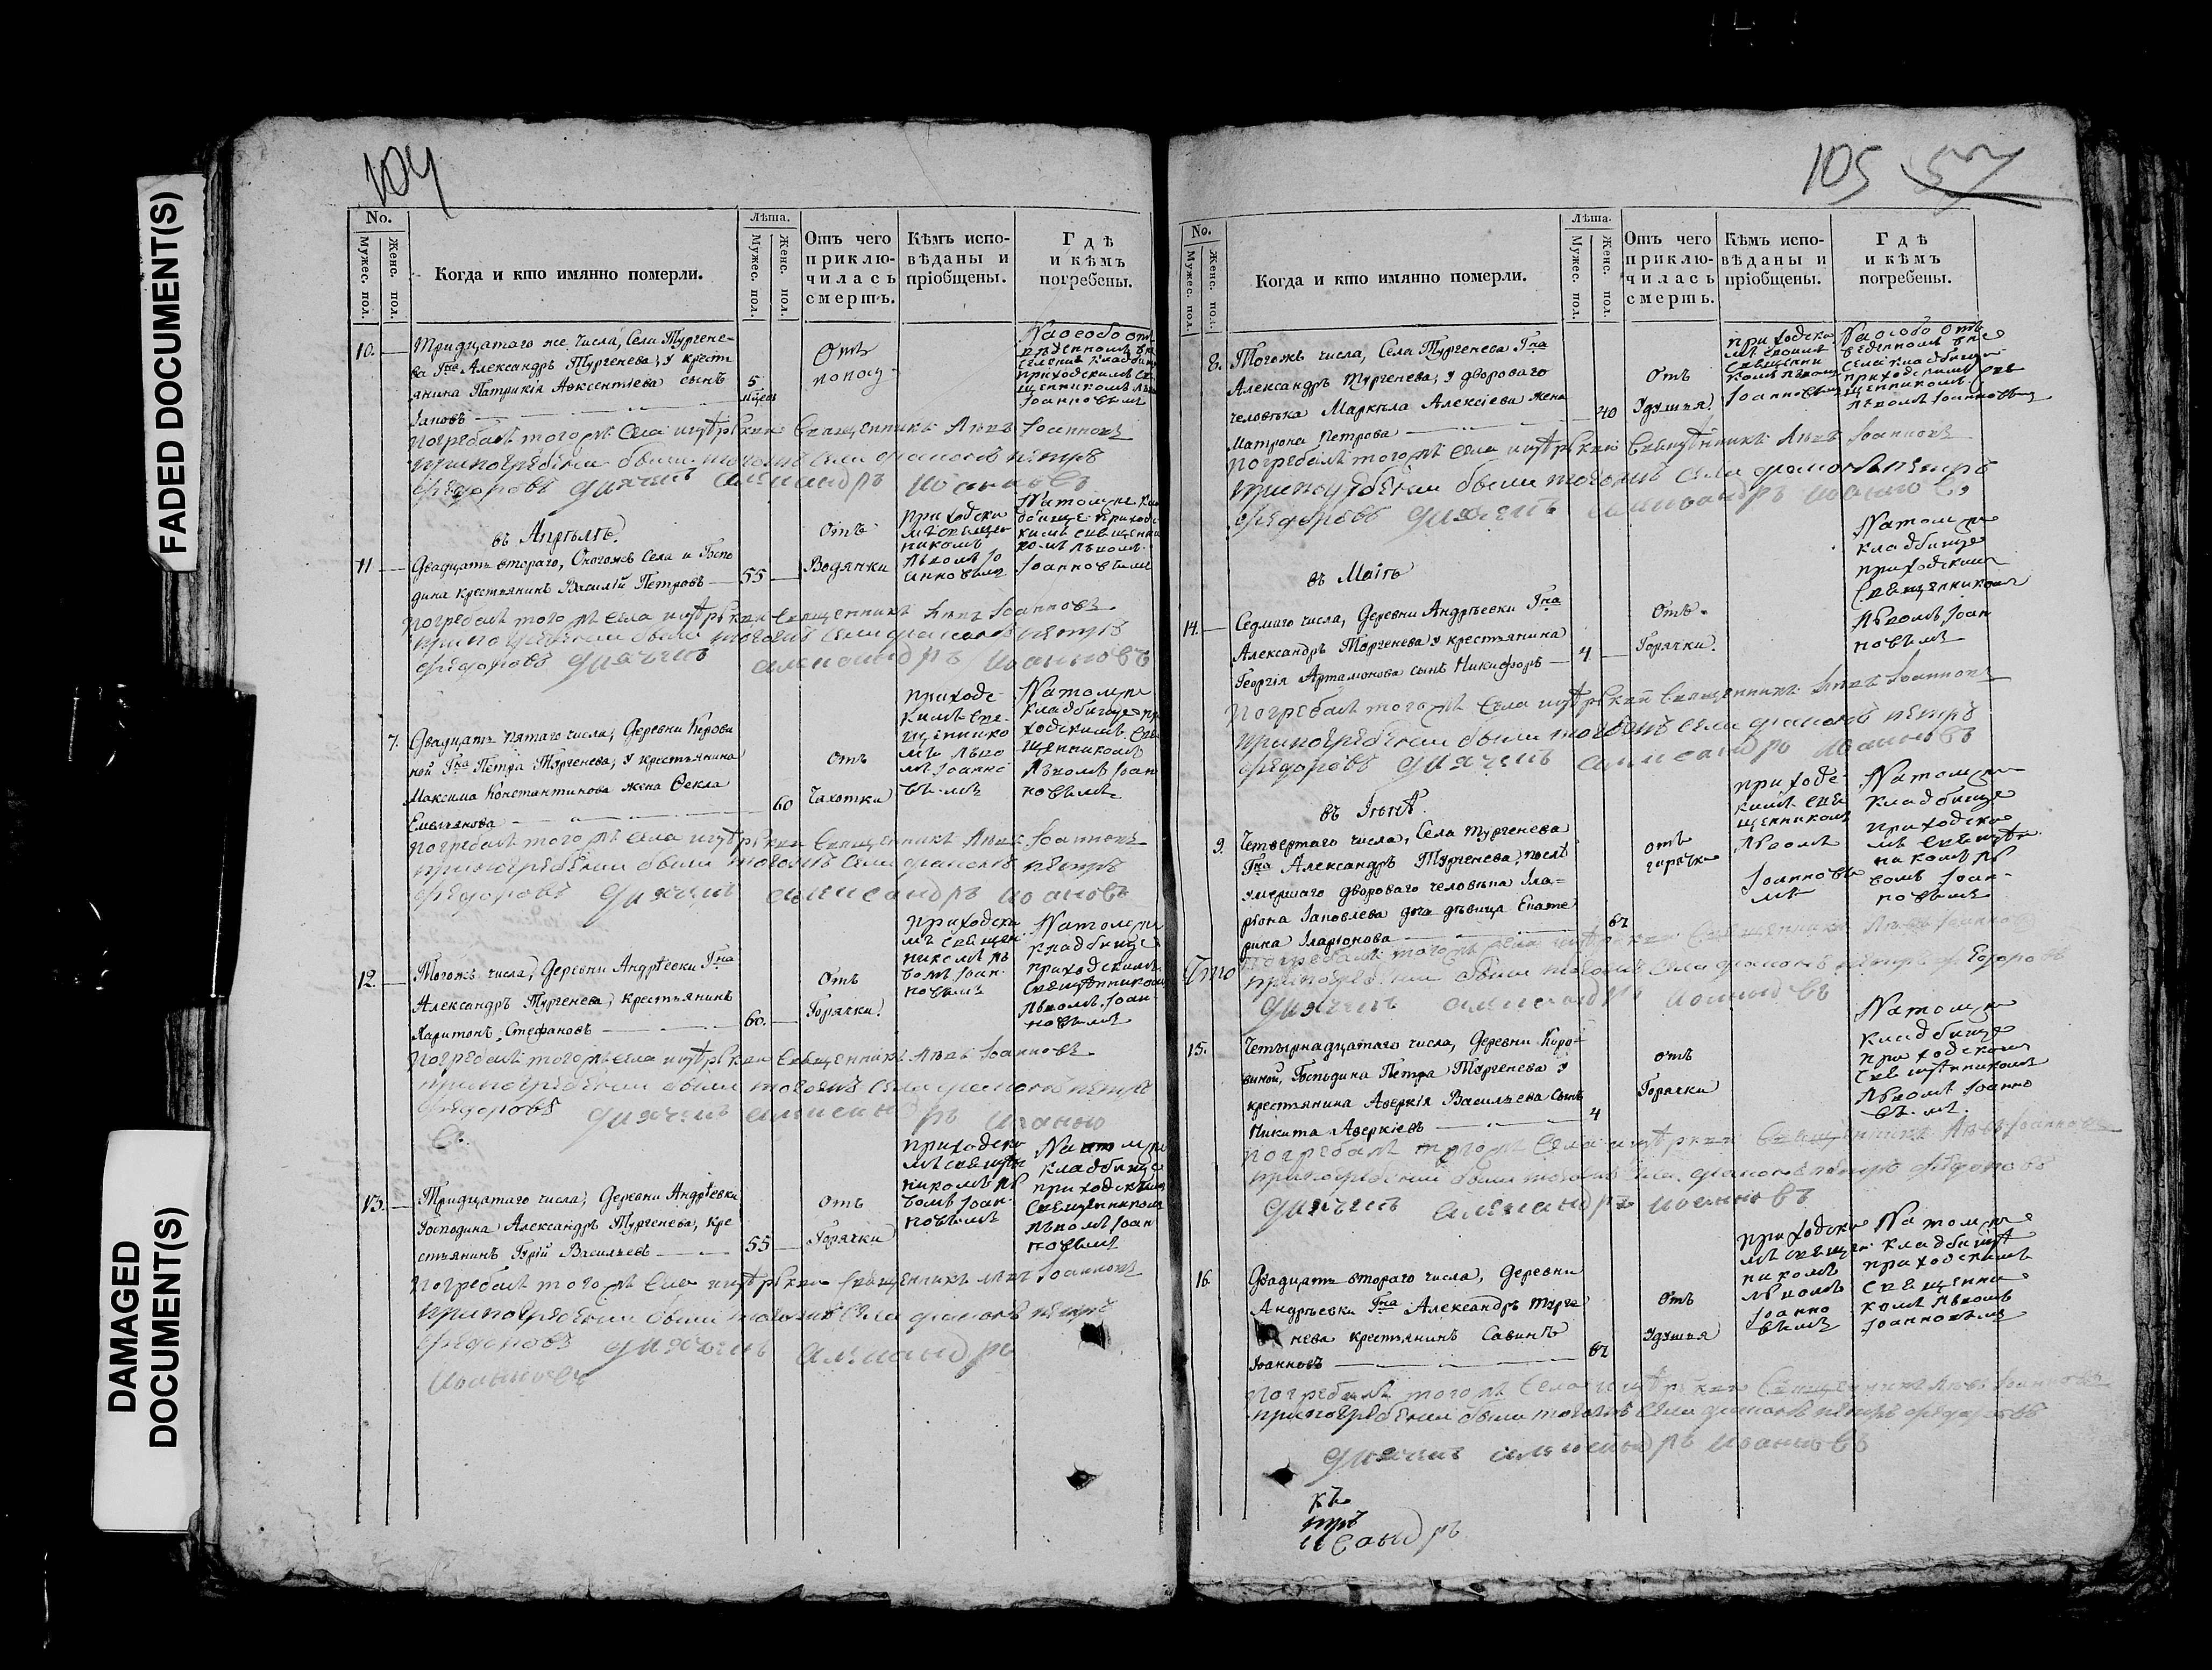 FADED DOCUMENT(S)
DAMAGED
DOCUMENT(S)
104
No.
Мужес. пол.
Женс. пол.
Когда и кто имянно померли.
Лѣта.
Мужес. пол.
Женс. пол.
Отъ чего
приклю-
чилась
смерть.
Кѣмъ испо-
вѣданы и
пріобщены.
Гдѣ
и кѣмъ
погребены.
10.
Тридцатаго же числа, Села Тургене-
ва Гна Александръ Тургенева, у крестъ
янина Патрикія Авксентіева сынъ
5
Отъ
поносу
На особо отъ
веденномъ
приходскимъ
Іоанновымъ
погребалъ того же Села Священникъ Левъ Іоанновъ
при погребении были того же Села Петръ
Федоровъ дьячекъ Александръ Иоанновъ
въ Апрѣлѣ.
11
Двадцать втораго, Оногожъ Села и Госпо
дина крестьянинъ Василій Петровъ
55
Отъ
Водянки
приходски
мъ священ
никомъ
Львомъ Іо
анновымъ
На томже кла
дбище приход
скимъ священни
комъ Львомъ
Іоанновымъ
погребалъ того же Села Священникъ Левъ Іоанновъ
при погребении были того же Села Петръ
Федоровъ дьячекъ Александръ Иоанновъ
7.
Двадцать пятаго числа, Деревни Корови
ной Гна Петра Тургенева, у крестьянина
Максима Константинова жена Ѳекла
Емельянова
60
отъ
Чахотки
приходс-
кимъ свя-
щеннико
мъ Льво
мъ Іоанно
вымъ
На томже
кладбище при
ходскимъ Свя
щенникомъ
Львомъ Іоан
новымъ
погребалъ того же Села Священникъ Левъ Іоанновъ
при погребении были того же Села Петръ
Федоровъ дьячекъ Александръ Иоановъ
12.
Тогожъ числа, Деревни Андрѣевки Гна
Александръ Тургенева, крестьянинъ
Харитонъ Стефановъ
60.
Отъ
Горячки
приходски
мъ священ
никомъ Ль
вомъ Іоан-
новымъ
На томже
кладбище
приходскимъ
Священникомъ
Львомъ Іоан-
новымъ
погребалъ того же Села Священникъ Левъ Іоанновъ
при погребении были того же Села Петръ
Федоровъ дьячекъ Александръ Иоанно
въ
13.
Тридцатаго числа, Деревни Андрѣевки
Господина Александръ Тургенева, кре
стьянинъ Гурій Васильевъ
55
отъ
Горячки
приходски
мъ священ
никомъ Ль
вомъ Іоан-
новымъ
На томже
кладбище
приходскимъ
Священникомъ
Львомъ Іоан
новымъ
погребалъ того же Села Священникъ Левъ Іоанновъ
при погребении были того же Села Петръ
Федоровъ дьячекъ Александръ
Иоанновъ
105 57
No.
Мужес. пол.
Женс. пол.
Когда и кто имянно померли.
Лѣта.
Мужес. пол.
Женс. пол.
Отъ чего
приклю-
чилась
смерть.
Кѣмъ испо-
вѣданы и
пріобщены.
Гдѣ
и кѣмъ
погребены.
8.
Тогожъ числа, Села Тургенева Гна
Александръ Тургенева, у двороваго
человѣка Маркѣла Алексіева жена
Матрона Петрова
40
Отъ
Удушья
приходски
Львомъ
Іоанновымъ
На особо отъ
веденномъ
кладбище
приходскимъ Свя
щенникомъ
Львомъ Іоанновымъ
погребалъ того же Села Священникъ Левъ Іоанновъ
при погребении были того же Села Петръ
Федоровъ дьячекъ Александръ Иоановъ
въ Маіѣ
14.
Седмаго числа, Деревни Андрѣевки Гна
Александръ Тургенева у крестьянина
Георгія Артамонова сынъ Никифоръ
4
Отъ
Горячки.
На томже
кладбище
приходскимъ
Священникомъ
Львомъ Іоан
новымъ
погребалъ того же Села Священникъ Левъ Іоанновъ
при погребении были того же Села Петръ
Федоровъ дьячекъ Александръ Иоанновъ
въ Іюнѣ.
9.
Четвертаго числа, Села Тургенева
Гна Александръ Тургенева, послѣ
умершаго двороваго человѣка Ила-
ріона Іаковлева дочь дѣвица Екате
рина Иларіонова
отъ
горячки
приходс
кимъ свя
щенникомъ
Львомъ
Іоанновы
мъ
На томже
кладбище
приходски
мъ священ
никомъ Ль
вомъ Іоан-
новымъ
погребалъ того же Села Священникъ Левъ Іоанно
при погребении были того же Села Петръ Федоровъ
дьячекъ Александръ Иоанновъ
15.
Четырнадцатаго числа, Деревни Коро-
виной, Господина Петра Тургенева у
крестьянина Аверкія Васильева сынъ
Никита Аверкіевъ
4
отъ
Горячки
На томже
кладбище
приходскимъ
Священникомъ
Львомъ Іоанно
вымъ.
погребалъ того же Села Священникъ Левъ Іоанновъ
при погребении были того же Села Петръ Федоровъ
дьячекъ Александръ Иоанновъ
16.
Двадцать втораго числа, Деревни
Андрѣевки Гна Александръ Турге
нева крестьянинъ Савинъ
Іоанновъ
отъ
Удушья
приходски
мъ священ
никомъ
Львомъ
Іоанно
вымъ
На томже
кладбище
приходскимъ
Священни
комъ Львомъ
Іоанновымъ
погребалъ того же Села Священникъ Левъ Іоанновъ
при погребении были того же Села Петръ Федоровъ
дьячекъ Александръ Иоанновъ
къ
тръ
сандръ